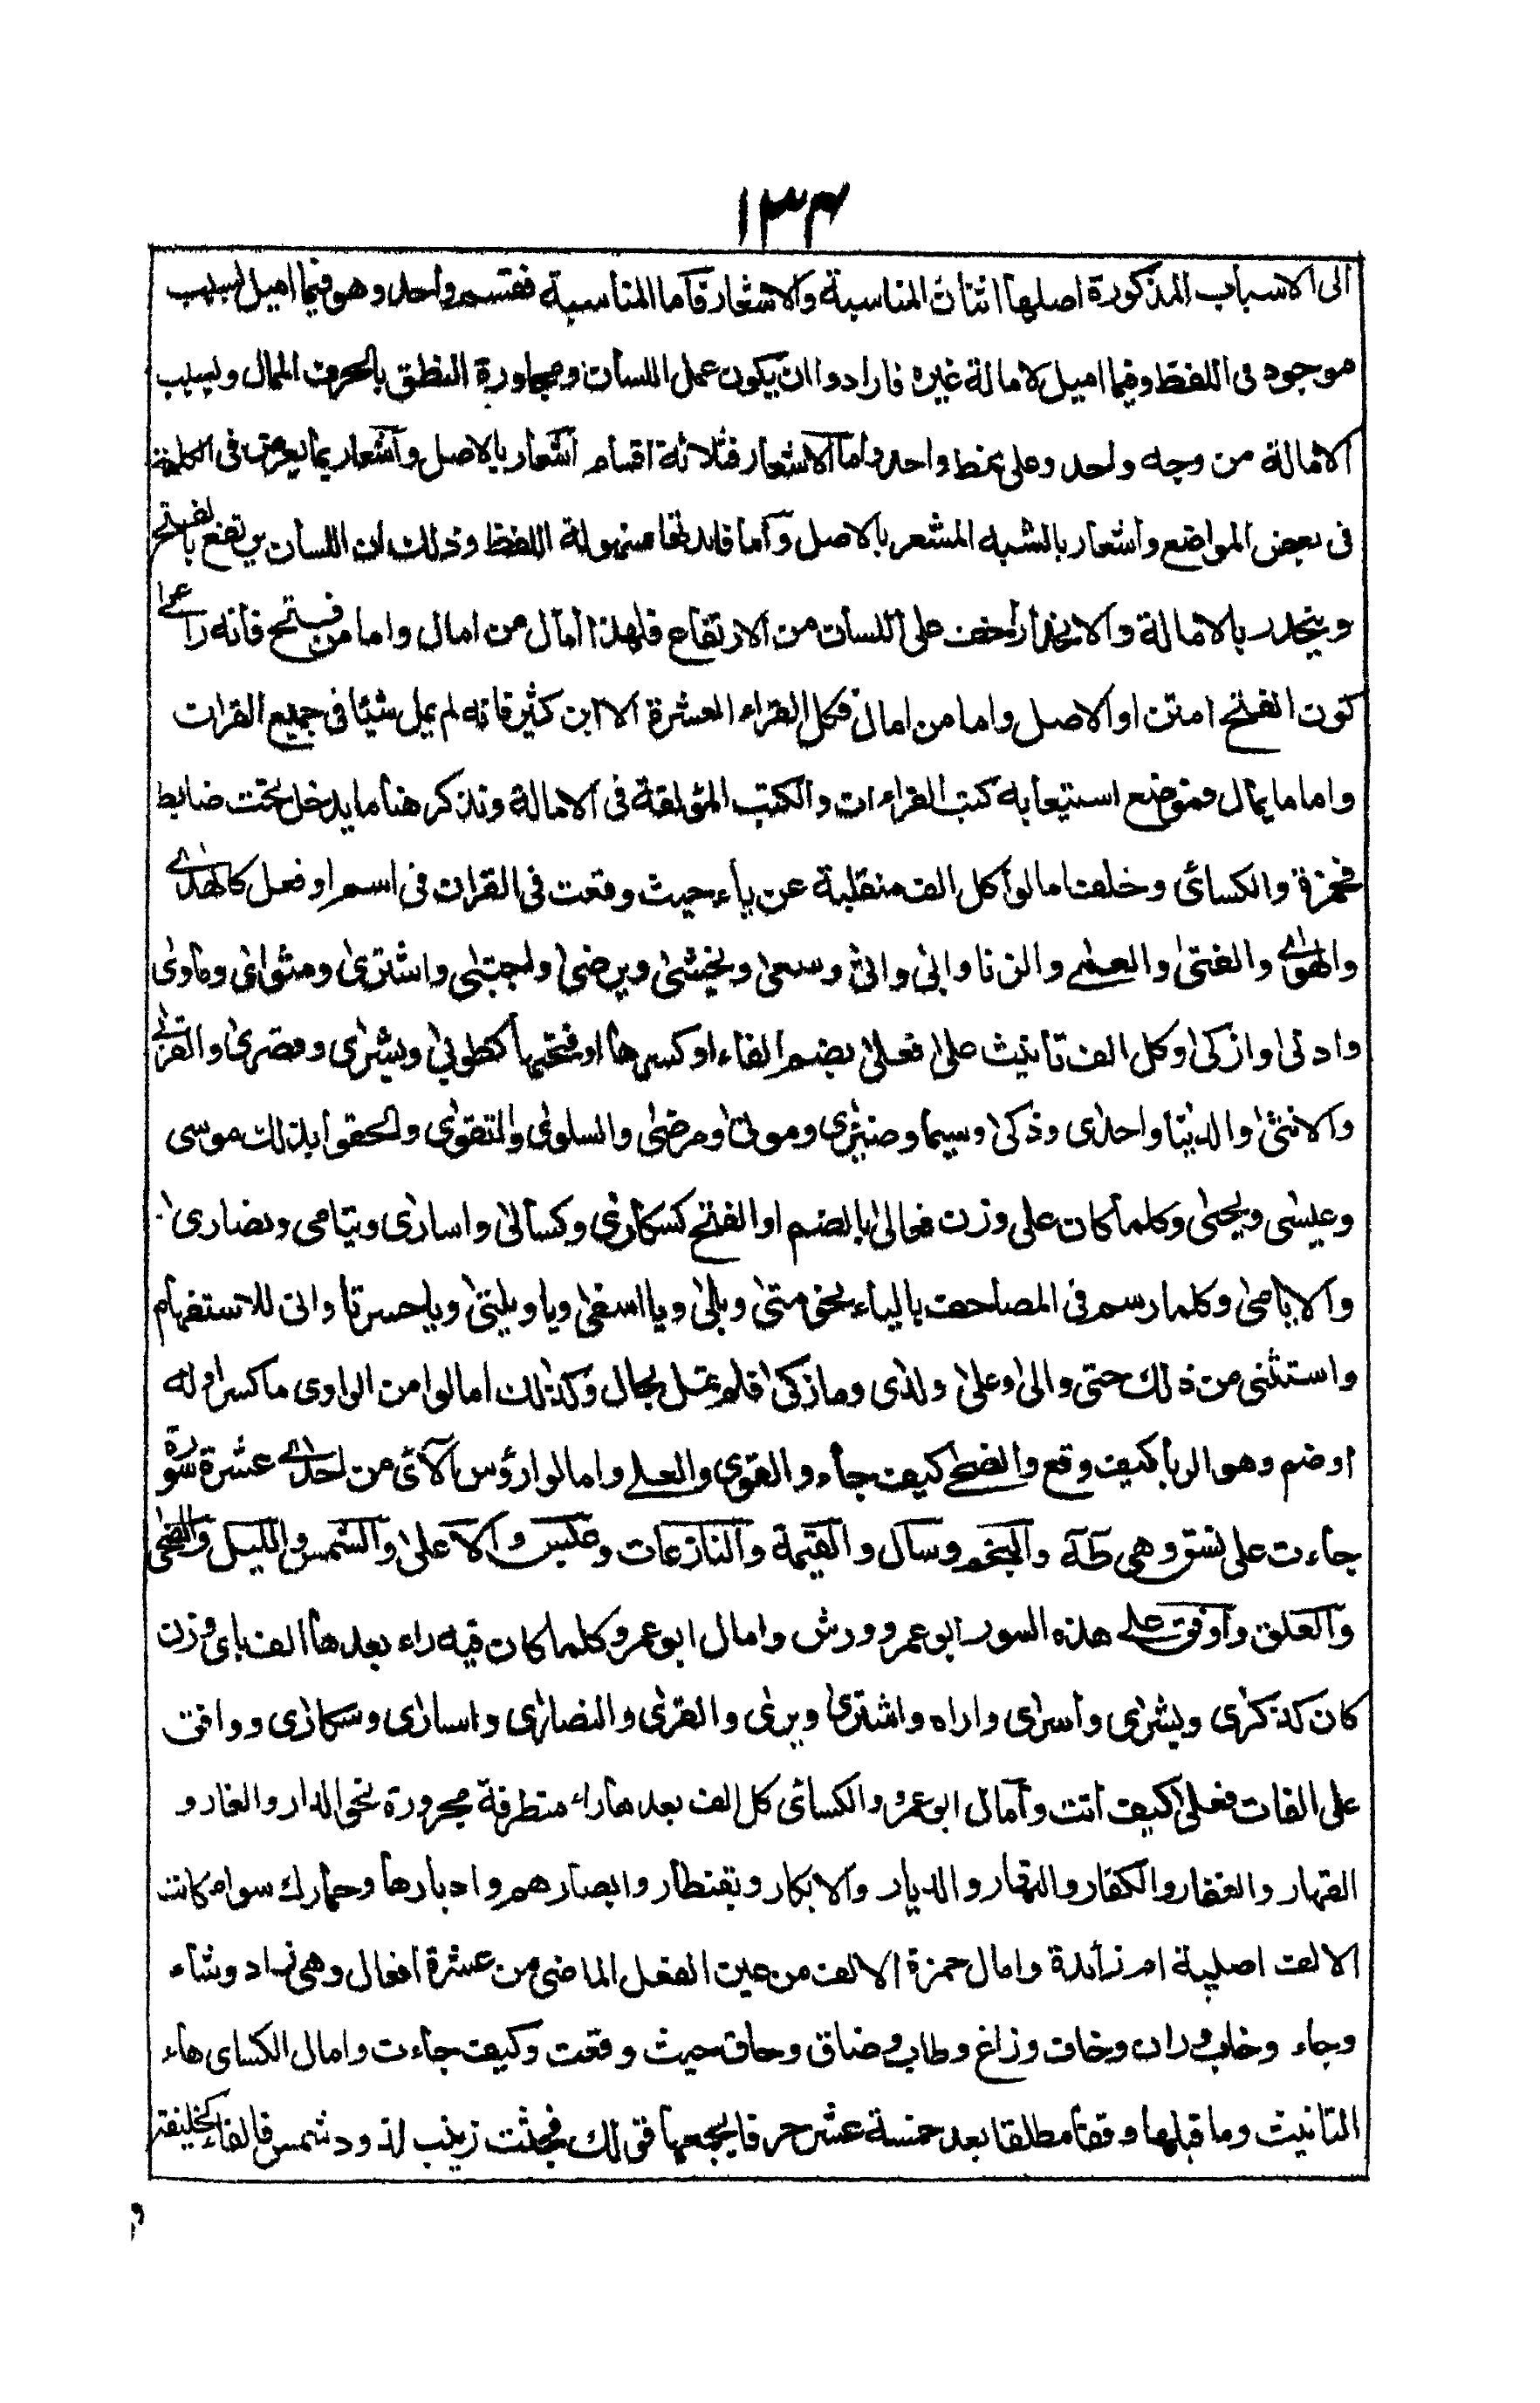 ١٣٤
الى الاسباب المذكورة اصلها اثنان المناسبة والاشعار فاما المناسبة فقسم واحد وهو فيما اميل لسبب
موجود فى اللفظ وفيما اميل لامالة غيره فارادوا ان يكون عمل اللسان ومجاورة النطق بالحرف الممال وبسبب
الامالة من وجه واحد وعلى نمط واحد واما الاشعار فثلاثة اقسام اشعار بالاصل واشعار بما يعرض فى الكلمة
فى بعض المواضع واشعار بالشبه المشعر بالاصل واما فايدتها سهولة اللفظ وذلك ان اللسان يرتفع بالفتح
وينحدر بالامالة والانحدار اخف على اللسان من الارتفاع فلهذا امال من امال واما من فتح فانه راعى
كون الفتح امتن او الاصل واما من امال فكل القراء العشرة الا ابن كثير فانه لم يمل شيئا فى جميع القران
واما ما يمال فموضع استيعابه كتب القراءات والكتب المؤلفة فى الامالة ونذكر هنا ما يدخل تحت ضابط
فحمزة والكسائى وخلف امالوا كل الف منقلبة عن ياء حيث وقعت فى القران فى اسم او فعل كالهدى
والهوى والفتى والعمى والزنا وابى واتى وسعى ويخشى ويرضى واجتبى واشترى ومثوى وماوى
وادنى وازكى وكل الف تانيث على فعلى بضم الفاء او كسرها او فتحها كطوبى وبشرى وقصرى والقربى
والانثى والدنيا واحدى وذكرى وسيما وضيزى وموتى ومرضى والسلوى والتقوى والحقوا بذلك موسى
وعيسى ويحيى وكلما كان على وزن فعالى بالضم او الفتح كسكارى وكسالى واسارى ويتامى ونصارى
والايامى وكلما رسم فى المصاحف بالياء نحو متى وبلى ويا اسفى ويا ويلتى ويا حسرتا وانى للاستفهام
واستثنى من ذلك حتى والى وعلى ولدى وما زكى فلم تمل بحال وكذلك امالوا من الواوى ما كسر اوله
او ضم وهو الربا كيف وقع والضحى كيف جاء والقوى والعلى وامالوا رؤس الآى من احدى عشرة سورة
جاءت على نسق وهى طه والنجم وسال والقيمة والنازعات وعبس والاعلى والشمس والليل والضحى
والعلق واوفق على هذه السور ابو عمرو وورش وامال ابو عمرو كلما كان فيه راء بعدها الف باى وزن
كان كذكرى وبشرى واسرى واراه واشترى ويرى والقرى والنصارى واسارى وسكارى ووافق
على الفات فعلى كيف اتت وامال ابو عمرو والكسائى كل الف بعدها راء متطرفة مجرورة نحو الدار والغار و
القهار والغفار والكفار والنهار والديار والابكار وبقنطار وابصارهم وادبارها وحمارك سواء كانت
الالف اصلية ام زائدة وامال حمزة الالف من عين الفعل الماضى من عشرة افعال وهى زاد وشاء
وجاء وخاب وران وخاف وزاغ وطاب وضاق وحاق حيث وقعت وكيف جاءت وامال الكساى هاء
التانيث وما قبلها وقفا مطلقا بعد خمسة عشر حرفا يجمعها قولك فجثت زينب لذود شمس فالفاء كخليفة